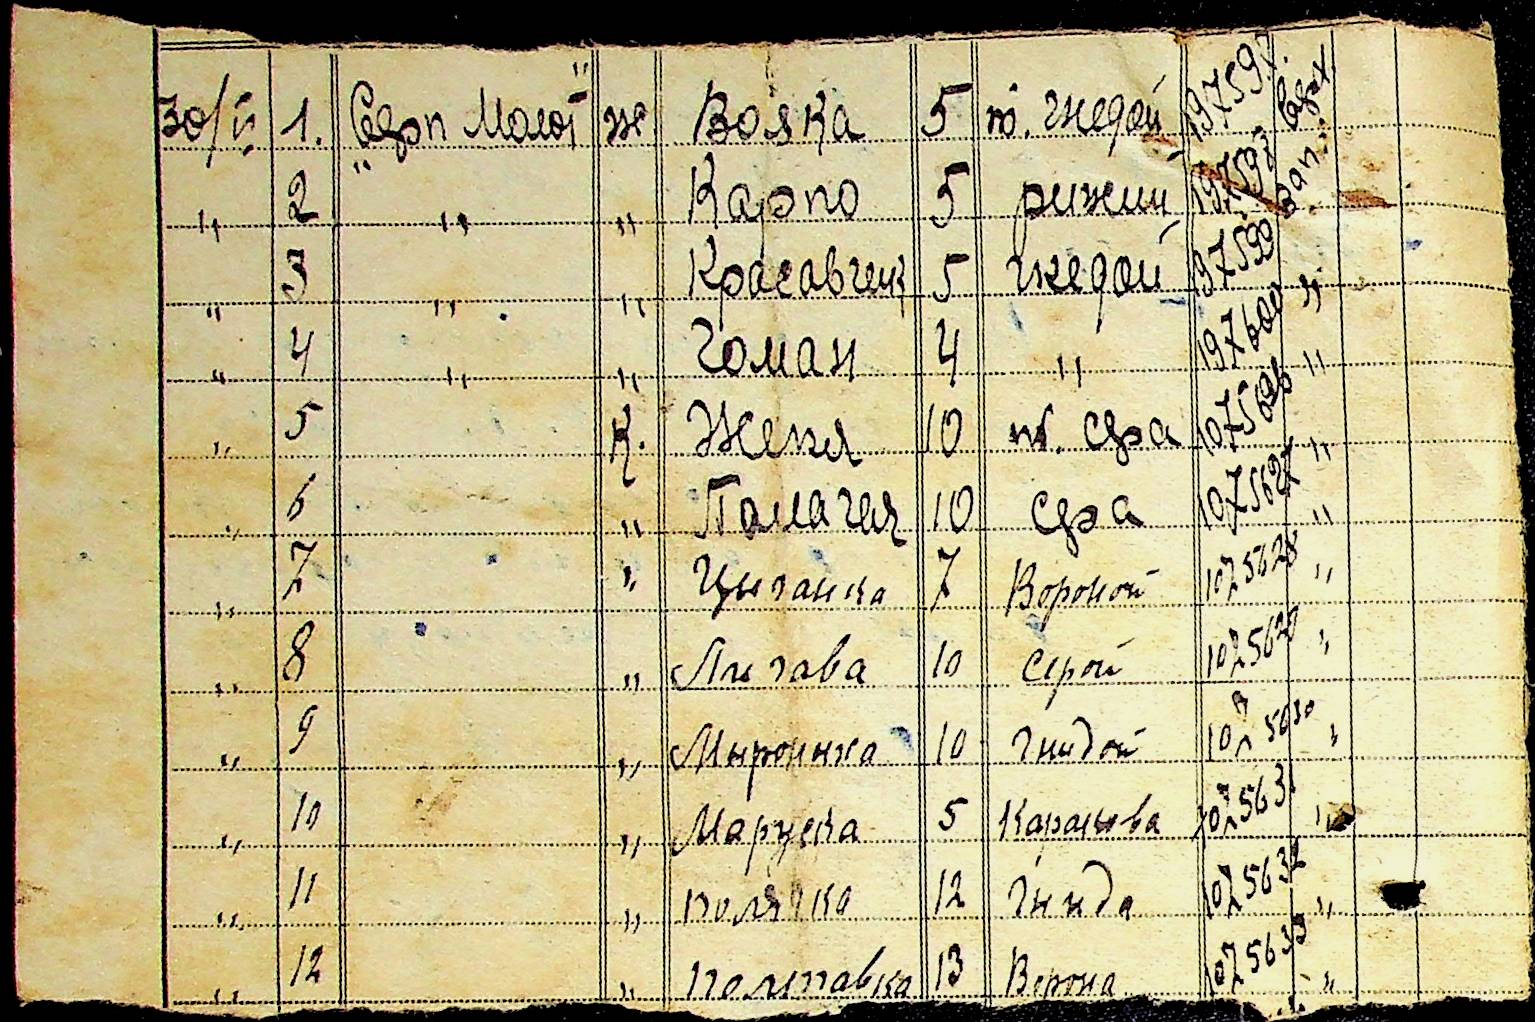 30/й 1. "Серп Молот" ж Волка 5 т. гнедой 197597. Серп.
„ 2 „ „ Карпо 5 рижий 197598 Зап.
„ 3 „ „ Красавчик 5 гнедой 197599 „
„ 4 „ „ Гоман 4 „ 197600 „
„ 5 К. Женя 10 т. сера 1075626 „
„ 6 „ 10 сера 1075627 „
„ 7 „ Цыганка 7 Вороной 1075628 „
„ 8 „ Лигава 10 серой 1075629 „
„ 9 „ Миронька 10 гнидой 1075630 „
„ 10 „ Маруска 5 Каракова 1075631 „
„ 11 „ полячка 12 гнида 1075632 „
„ 12 „ полтавка 13 Ворона 1075633 „